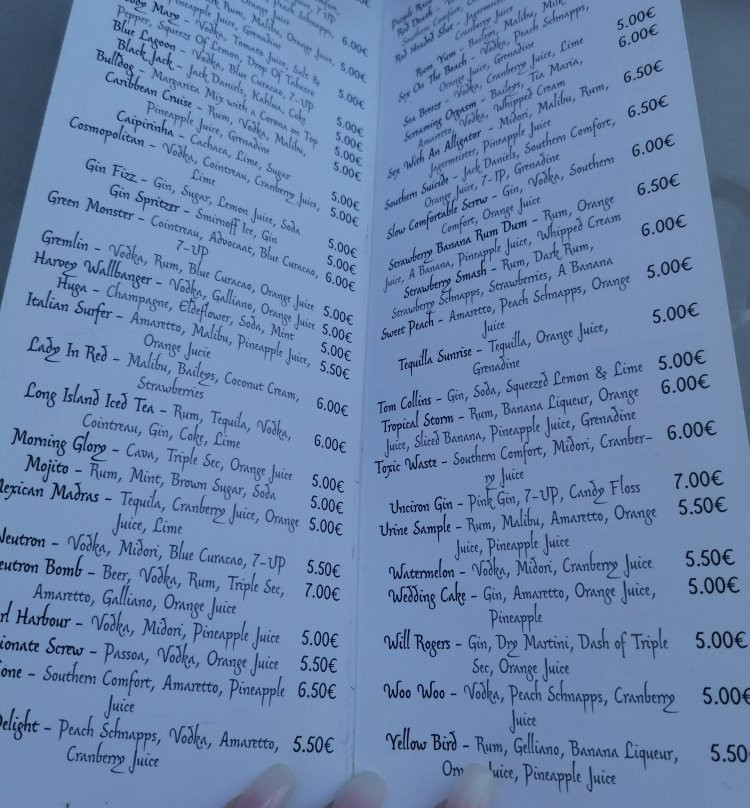 Pineapple Juice, Grenadine
Mary - Vodka, Tomato Juice, Salt &
Pepper, Squeeze Of Lemon, Drop Of Tabasco
6.00€
Blue Lagoon - Vodka, Blue Curacao, 7-UP
5.00€
Black Jack - Jack Daniels, Kahlua, Coke
5.00€
Bulldog - Margarita Mix with a Corona on Top
5.00€
Caribbean Cruise - Rum, Vodka, Malibu,
5.00€
Pineapple Juice, Grenadine
Caipirinha - Cachaca, Lime, Sugar
5.00€
Cosmopolitan - Vodka, Cointreau, Cranberry Juice,
5.00€
Lime
Gin Fizz - Gin, Sugar, Lemon Juice, Soda
5.00€
Gin Spritzer - Smirnoff Ice, Gin
5.00€
Green Monster - Cointreau, Advocaat, Blue Curacao,
6.00€
7-UP
Gremlin - Vodka, Rum, Blue Curacao, Orange Juice
5.00€
Harvey Wallbanger - Vodka, Galliano, Orange Juice
5.00€
Huga - Champagne, Eldeflower, Soda, Mint
5.00€
Italian Surfer - Amaretto, Malibu, Pineapple Juice,
5.50€
Orange Jucie
Lady In Red - Malibu, Baileys, Coconut Cream,
6.00€
Strawberries
Long Island Iced Tea - Rum, Tequila, Vodka,
6.00€
Cointreau, Gin, Coke, Lime
Morning Glory - Cava, Triple Sec, Orange Juice
5.00€
Mojito - Rum, Mint, Brown Sugar, Soda
5.00€
Mexican Madras - Tequila, Cranberry Juice, Orange
5.00€
Juice, Lime
Neutron - Vodka, Midori, Blue Curacao, 7-UP
5.50€
eutron Bomb - Beer, Vodka, Rum, Triple Sec,
7.00€
Amaretto, Galliano, Orange Juice
rl Harbour - Vodka, Midori, Pineapple Juice
5.00€
ionate Screw - Passoa, Vodka, Orange Juice
5.50€
one - Southern Comfort, Amaretto, Pineapple
6.50€
Juice
Delight - Peach Schnapps, Vodka, Amaretto,
5.50€
Cranberry Juice
Cranberry Juice
Rum Yum - Baileys, Malibu, Milk
5.00€
Sex On The Beach - Vodka, Peach Schnapps,
6.00€
Orange Juice, Grenadine
Sea Breeze - Vodka, Cranberry Juice, Lime
Screaming Orgasm - Baileys, Tia Maria,
6.50€
Amaretto, Vodka, Whipped Cream
Sex With An Alligator - Midori, Malibu, Rum,
6.50€
Jagermeister, Pineapple Juice
Southern Suicide - Jack Daniels, Southern Comfort,
6.00€
Orange Juice, 7-UP, Grenadine
Slow Comfortable Screw - Gin, Vodka, Southern
6.50€
Comfort, Orange Juice
Strawberry Banana Rum Dum - Rum, Orange
6.00€
Juice, A Banana, Pineapple Juice, Whipped Cream
Strawberry Smash - Rum, Dark Rum,
5.00€
Strawberry Schnapps, Strawberries, A Banana
Sweet Peach - Amaretto, Peach Schnapps, Orange
5.00€
Juice
Tequilla Sunrise - Tequilla, Orange Juice,
Grenadine
Tom Collins - Gin, Soda, Squeezed Lemon & Lime
5.00€
Tropical Storm - Rum, Banana Liqueur, Orange
6.00€
Juice, Sliced Banana, Pineapple Juice, Grenadine
Toxic Waste - Southern Comfort, Midori, Cranber-
6.00€
ry Juice
Unciron Gin - Pink Gin, 7-UP, Candy Floss
7.00€
Urine Sample - Rum, Malibu, Amaretto, Orange
5.50€
Juice, Pineapple Juice
Watermelon - Vodka, Midori, Cranberry Juice
5.50€
Wedding Cake - Gin, Amaretto, Orange Juice,
5.00€
Pineapple
Will Rogers - Gin, Dry Martini, Dash of Triple
5.00€
Sec, Orange Juice
Woo Woo - Vodka, Peach Schnapps, Cranberry
5.00€
Juice
Yellow Bird - Rum, Gelliano, Banana Liqueur,
5.50
Juice, Pineapple Juice